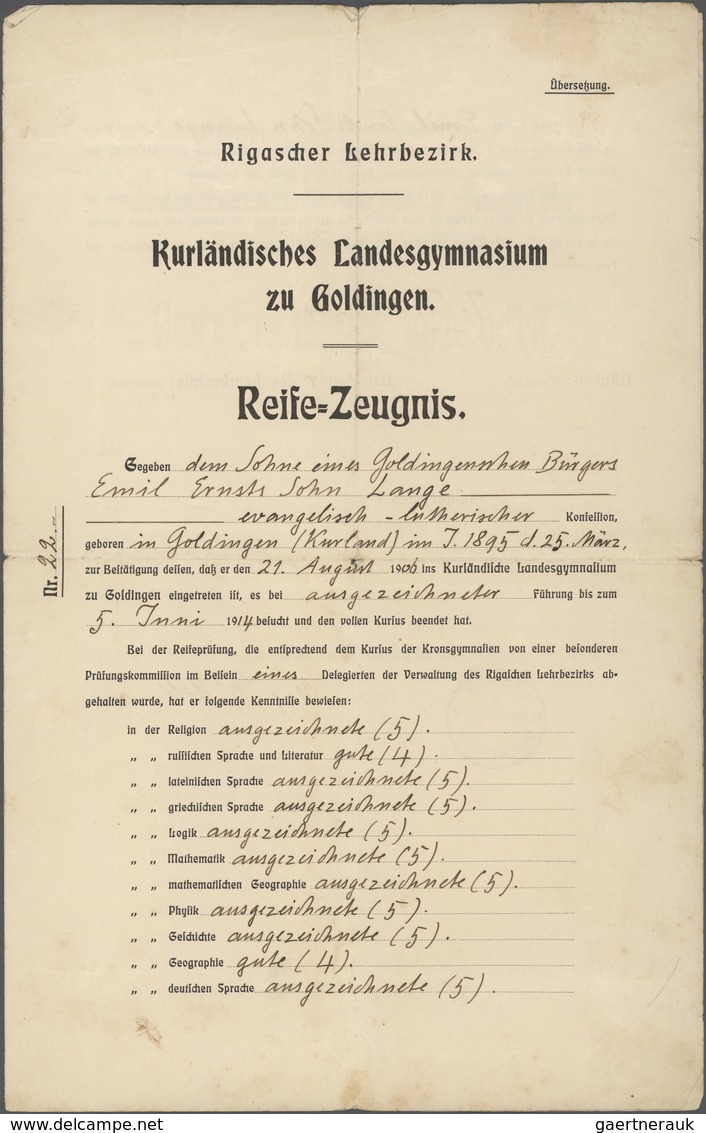 Übersetzung.
Rigascher Lehrbezirk.
Kurländisches Landesgymnasium
zu Goldingen.
Reife=Zeugnis.
Gegeben dem Sohne eines Goldingenschen Bürgers
Emil Ernsts Sohn Lange
evangelisch-lutherischer Konfession,
geboren in Goldingen (Kurland) im J. 1895 d. 25. März,
zur Bestätigung dessen, daß er den 21. August 1906 ins Kurländische Landesgymnasium
zu Goldingen eingetreten ist, es bei ausgezeichneter Führung bis zum
5. Juni 1914 besucht und den vollen Kursus beendet hat.
Nr. 22.
Bei der Reifeprüfung, die entsprechend dem Kursus der Kronsgymnasien von einer besonderen
Prüfungskommission im Beisein eines Delegierten der Verwaltung des Rigaschen Lehrbezirks ab-
gehalten wurde, hat er folgende Kenntnisse bewiesen:
in der Religion ausgezeichnete (5).
„ „ russischen Sprache und Literatur gute (4).
„ „ lateinischen Sprache ausgezeichnete (5).
„ „ griechischen Sprache ausgezeichnete (5).
„ „ Logik ausgezeichnete (5).
„ „ Mathematik ausgezeichnete (5).
„ „ mathematischen Geographie ausgezeichnete (5).
„ „ Physik ausgezeichnete (5).
„ „ Geschichte ausgezeichnete (5).
„ „ Geographie gute (4).
„ „ deutschen Sprache ausgezeichnete (5).
gaertnerauk